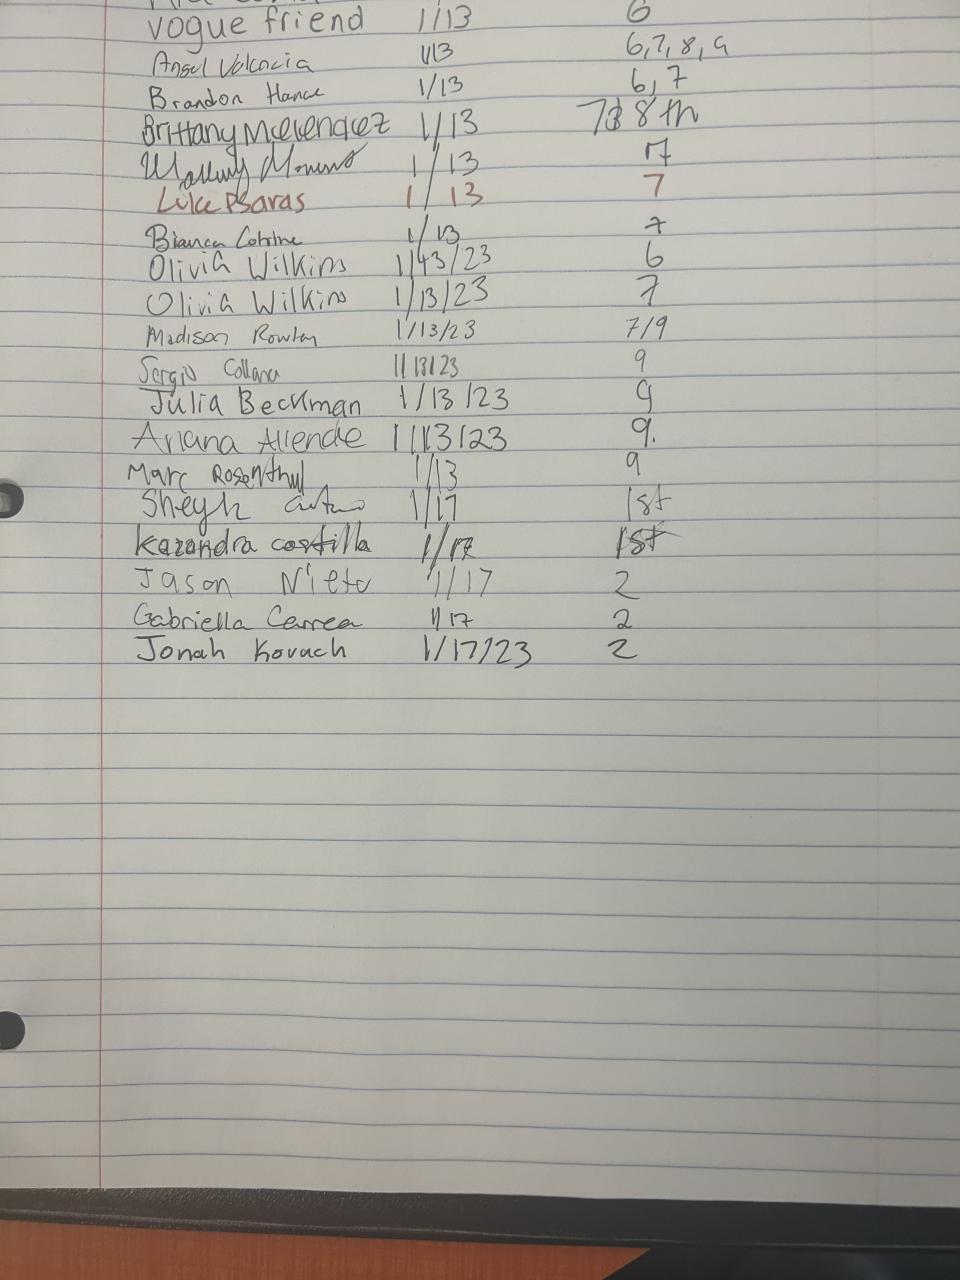 vogue friend 1/13 6
Angel Valencia 1/13 6,7,8,9
Brandon Hance 1/13 6,7
Brittany Melendez 1/13 7&8th
1/13 7
Luke Psaras 1/13 7
Bianca 1/13 7
Olivia Wilkins 1/13/23 6
Olivia Wilkins 1/13/23 7
Madison Rowley 1/13/23 7/9
Sergio Collana 1/13/23 9
Julia Beckman 1/13/23 9
Ariana Allende 1/13/23 9.
Marc Rosenthal 1/13 9
Sheyla 1/17 1st
Kazandra costilla 1/17 1st
Jason Nieto 1/17 2
Gabriella Correa 1/17 2
Jonah Kovach 1/17/23 2